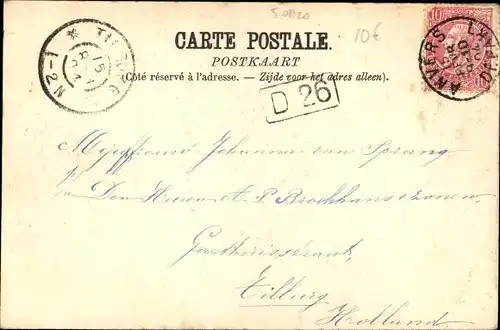 50120
10€
CARTE POSTALE.
POSTKAART
(Côté réservé à l'adresse. — Zijde voor het adres alleen).
10
ANVERS
D 26
N 2-1
15
Mejuffrouw Johanna van Sprang
p/a Den Heeren A. P. Brockhans & zonen
Gasthuisstraat,
Tilburg
Holland